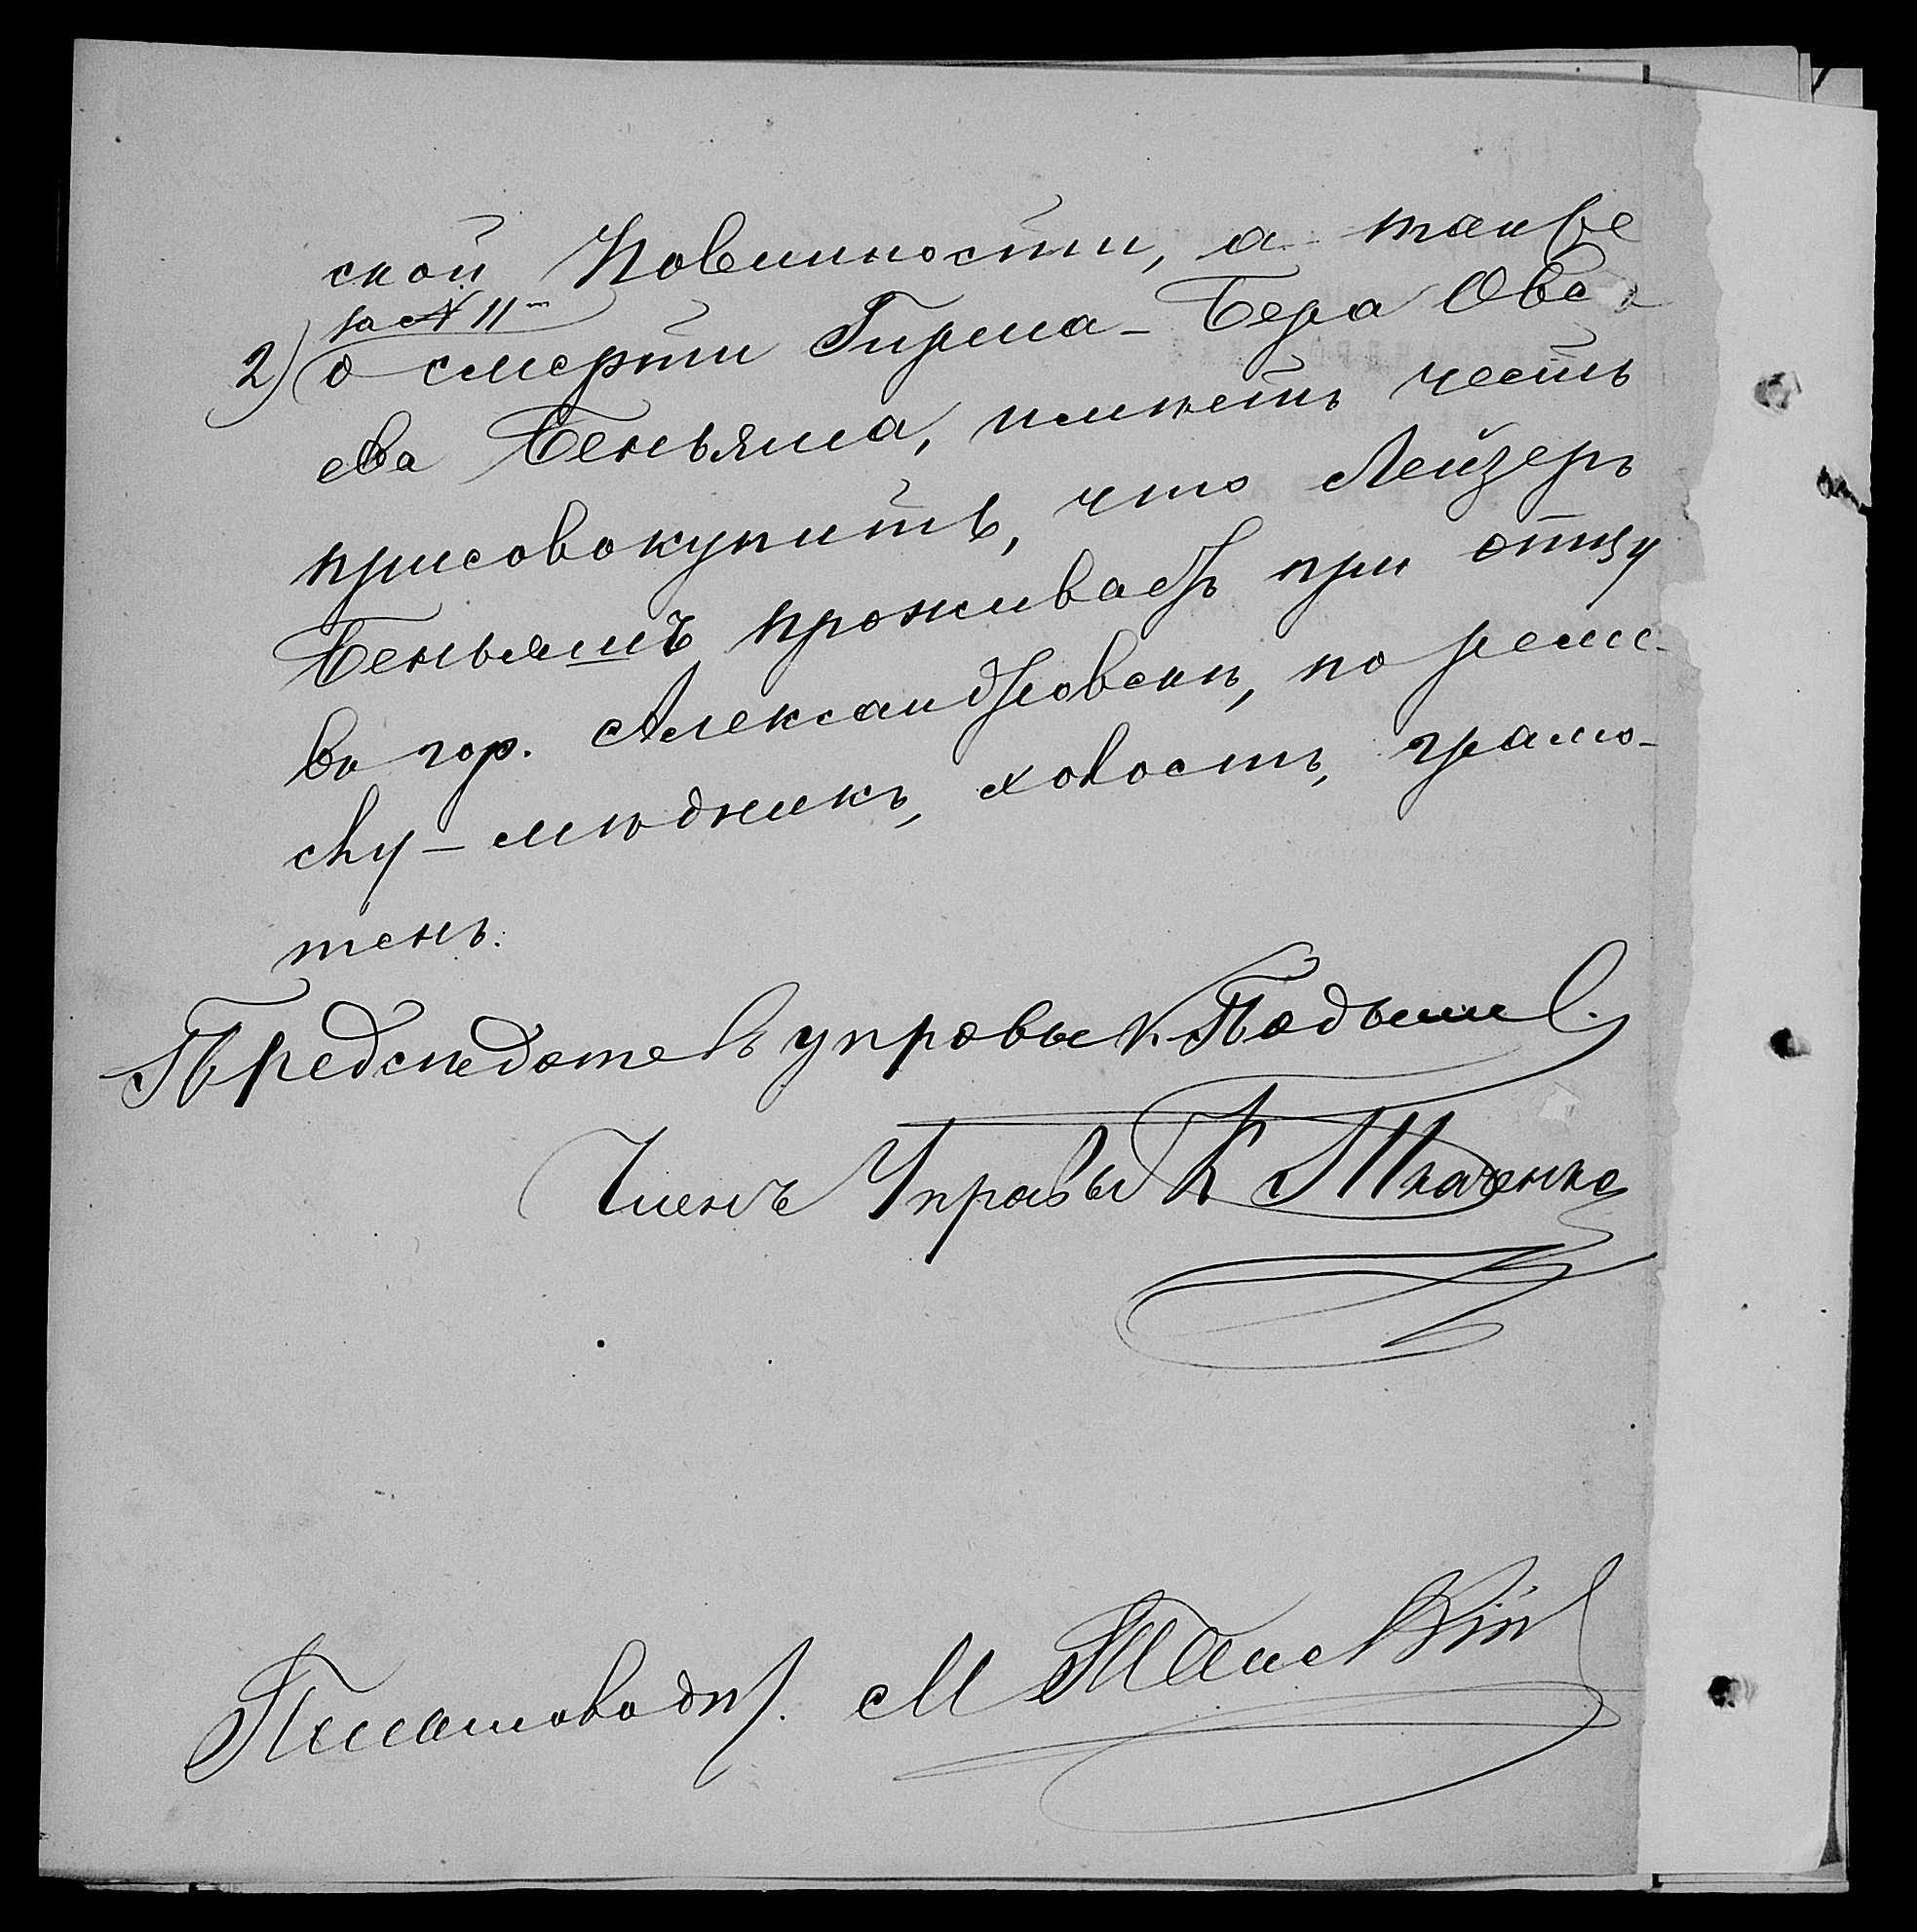 ской Повинности, а также
за № 11 m
2) о смерти Гирша-Бера Овсе
ева Беньяша, имѣетъ честь
присовокупить, что Лейзеръ
Беньяшъ проживаетъ при отцу
въ гор. Александровскѣ, по реме-
слу – мѣдникъ, холостъ, грамо-
тенъ.
Предсѣдатель управы
Членъ Управы К Ткаченко
Письмоводит. М